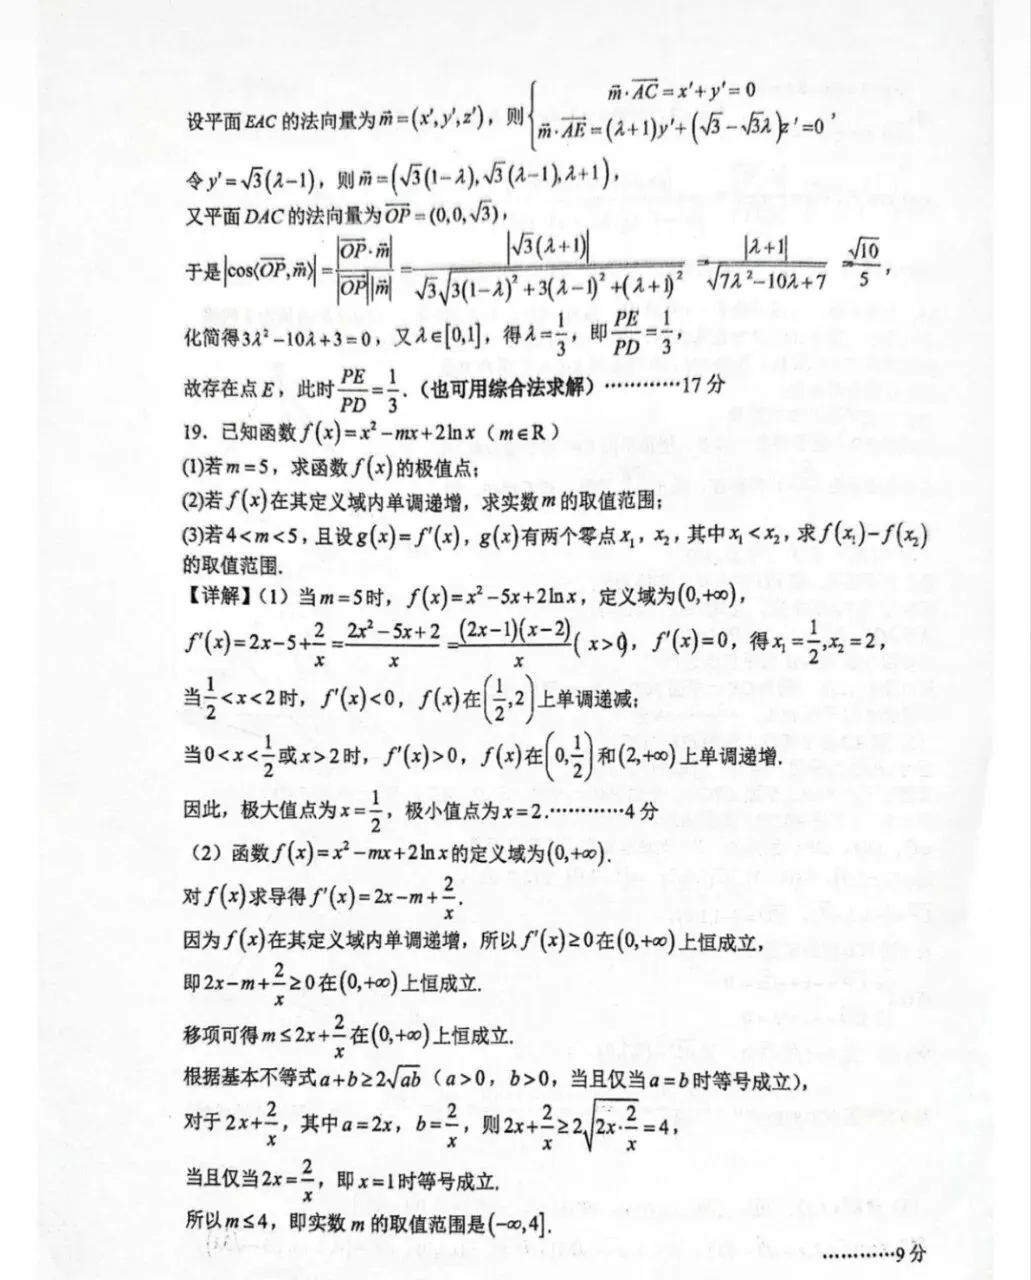 设平面EAC的法向量为m⃗=(x′,y′,z′)，则{m⃗·AC⃗=x′+y′=0
m⃗·AE⃗=(λ+1)y′+(√3−√3λ)z′=0，
令y′=√3(λ−1)，则m⃗=(√3(1−λ),√3(λ−1),λ+1)，
又平面DAC的法向量为OP⃗=(0,0,√3)，
于是|cos⟨OP⃗,m⃗⟩|=|OP⃗·m⃗|/|OP⃗||m⃗|=|√3(λ+1)|/√3√3(1−λ)²+3(λ−1)²+(λ+1)²=|λ+1|/√7λ²−10λ+7=√10/5，
化简得3λ²−10λ+3=0，又λ∈[0,1]，得λ=1/3，即PE/PD=1/3，
故存在点E，此时PE/PD=1/3．（也可用综合法求解）…………17分
19．已知函数f(x)=x²−mx+2lnx（m∈R）
(1)若m=5，求函数f(x)的极值点；
(2)若f(x)在其定义域内单调递增，求实数m的取值范围；
(3)若4<m<5，且设g(x)=f′(x)，g(x)有两个零点x₁，x₂，其中x₁<x₂，求f(x₁)−f(x₂)
的取值范围.
【详解】（1）当m=5时，f(x)=x²−5x+2lnx，定义域为(0,+∞)，
f′(x)=2x−5+2/x=2x²−5x+2/x=(2x−1)(x−2)/x(x>0)，f′(x)=0，得x₁=1/2,x₂=2，
当1/2<x<2时，f′(x)<0，f(x)在(1/2,2)上单调递减；
当0<x<1/2或x>2时，f′(x)>0，f(x)在(0,1/2)和(2,+∞)上单调递增.
因此，极大值点为x=1/2，极小值点为x=2.…………4分
（2）函数f(x)=x²−mx+2lnx的定义域为(0,+∞).
对f(x)求导得f′(x)=2x−m+2/x.
因为f(x)在其定义域内单调递增，所以f′(x)≥0在(0,+∞)上恒成立，
即2x−m+2/x≥0在(0,+∞)上恒成立.
移项可得m≤2x+2/x在(0,+∞)上恒成立.
根据基本不等式a+b≥2√ab（a>0，b>0，当且仅当a=b时等号成立），
对于2x+2/x，其中a=2x，b=2/x，则2x+2/x≥2√2x·2/x=4，
当且仅当2x=2/x，即x=1时等号成立.
所以m≤4，即实数m的取值范围是(−∞,4].
…………9分